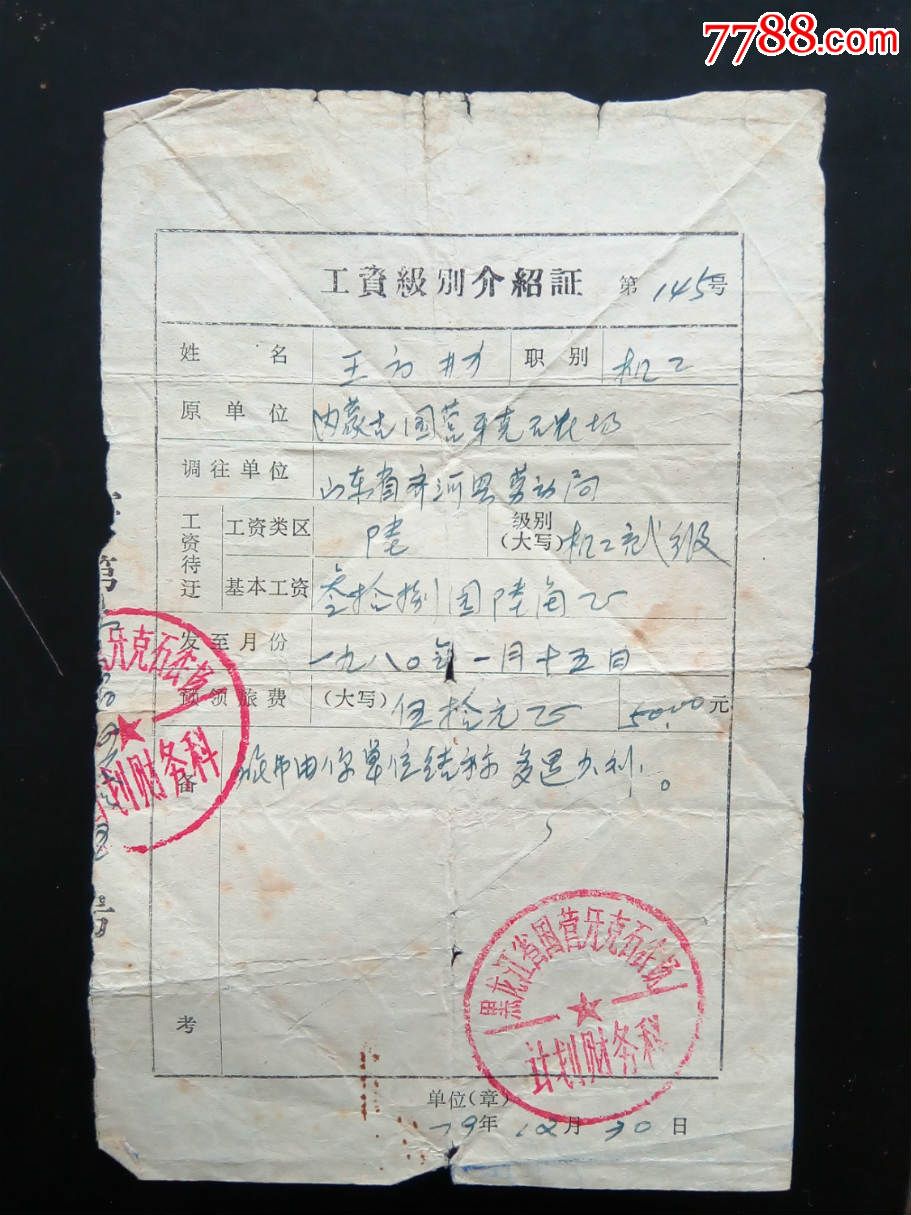 7788.com
工資級別介紹証 第145号
姓名 王 职别 机工
原单位 内蒙古国营牙克石农场
调往单位 山东省齐河县劳动局
工资待迂 工资类区 陆 级别(大写) 机工弍级
基本工资 叁拾捌圆陆角正
发至月份 一九八〇年一月十五日
预领旅费 (大写) 伍拾元正 50.00元
备考 旅费由你单位结 多退少补。
牙克石
计划财务科
第
黑龙江省国营牙克石农场
计划财务科
单位(章)
79年12月30日